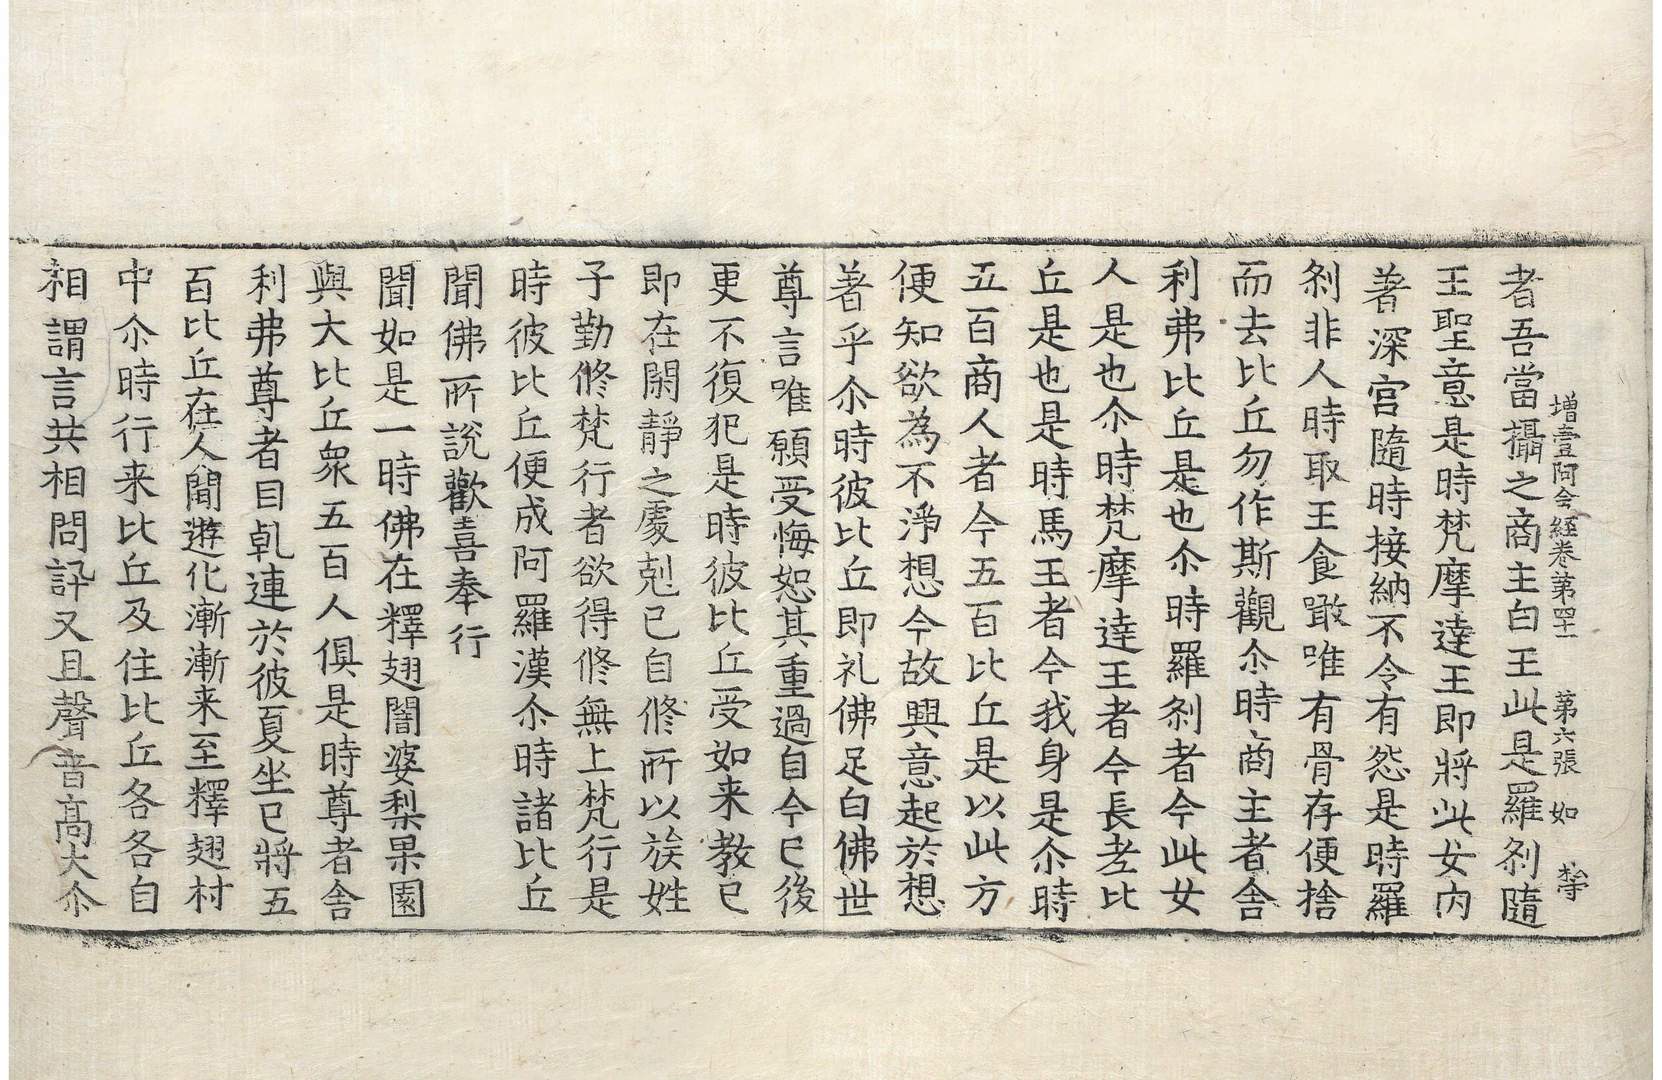 增壹阿含経卷第四十一 第六張 如
者吾當攝之商主白王此是羅刹隨
王聖意是時梵摩達王即將此女内
著深宫隨時接納不令有怨是時羅
刹非人時取王食噉唯有骨存便捨
而去比丘勿作斯觀尒時商主者舍
利弗比丘是也尒時羅刹者今此女
人是也尒時梵摩達王者今長老比
丘是也是時馬王者今我身是尒時
五百商人者今五百比丘是以此方
便知欲為不淨想今故興意起於想
著乎尒時彼比丘即礼佛足白佛世
尊言唯願受悔恕其重過自今已後
更不復犯是時彼比丘受如来教已
即在閑靜之處剋己自修所以族姓
子勤修梵行者欲得修無上梵行是
時彼比丘便成阿羅漢尒時諸比丘
聞佛所說歡喜奉行
聞如是一時佛在釋翅闇婆梨果園
與大比丘衆五百人俱是時尊者舍
利弗尊者目乹連於彼夏坐已將五
百比丘在人閒遊化漸漸来至釋翅村
中尒時行来比丘及住比丘各各自
相謂言共相問訊又且聲音髙大尒